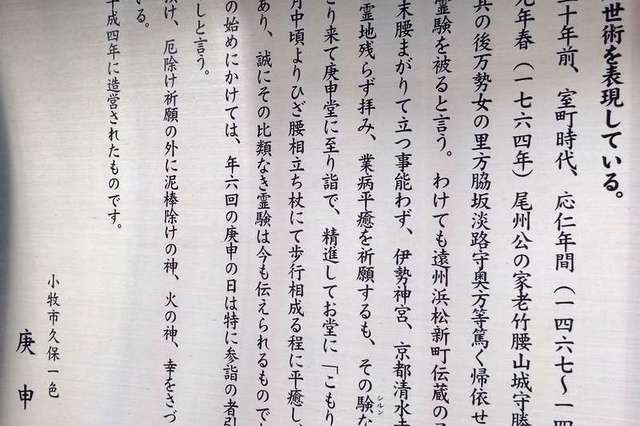 世術を表現している。
五十年前、室町時代、応仁年間（一四六七〜一四
元年春（一七六四年）尾州公の家老竹腰山城守勝
其の後万勢女の里方脇坂淡路守奥方等篤く帰依せ
霊験を被ると言う。わけても遠州浜松新町伝蔵の
末腰まがりて立つ事能わず、伊勢神宮、京都清水
霊地残らず拝み、業病平癒を祈願するも、その験な
シルシ
とり来て庚申堂に至り詣で、精進してお堂に「こもり
月中頃よりひざ腰相立ち杖にて歩行相成る程に平癒し
あり、誠にその比類なき霊験は今も伝えられるもので
の始めにかけては、年六回の庚申の日は特に参詣の者引
しと言う。
け、厄除け祈願の外に泥棒除けの神、火の神、幸をさづ
いる。
平成四年に造営されたものです。
小牧市久保一色
庚申